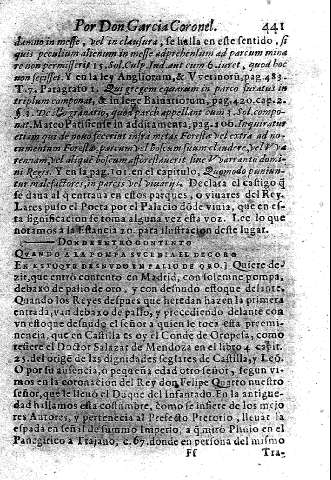 Por Don Garcia Coronel. 441
damno in messe, vel in clausura, se halla en este sentido, si
quis peculium alienum in messe aprehensum ad parcum mina
re non permisserit, 15. Sol. culp. Iud. aut cum 6. iuret, quod hoc
non fecisset. Y en la ley Angliorum, & Vverinorũ, pag. 483.
T. 7. Paragrafo 1. Qui gregem equarum in parco furatus in
triplum componat, & in lege Baiuariorum, pag. 420. cap. 2.
§ 3. De granario, quod parch appellant cum 3. Sol. compo-
nat. Mateo Parisiense in additamenta, pag. 106. Inquiratur
etiam de bosco sectis infra metas Forestæ vel extra ad no-
cumentum Forestæ parcum vel boscum suum claudere, vel
vel aliquè boscum afforestauerit sine Vvarranto domi-
ni Regis. Y en la pag. 101. en el capitulo, Quomodo puniun-
tur malefactores, in parcis vel viuarys. Declara el castigo q̃
se daua al q̃ entraua en estos parques, o viuares del Rey.
Lares puso el Poeta por el Palacio dõde viuia, que en es-
ta significacion se toma alguna vez esta voz. Lee lo que
notamos à la Estancia 20. para ilustracion deste lugar.
DONDE ENTRO CONTINTO
QUANDO A LA POMPA SUCEDIA EL DECORO
EN ESTOQUE DESNUDO EN PALIO DE ORO.] Quiere de-
zir, que entrò contento en Madrid, con solemne pompa,
debaxo de palio de oro, y con desnudo estoque delante.
Quando los Reyes despues que heredan hazen la primera
entrada, van debaxo de palio, y precediendo delante con
vn estoque desnudo el señor a quien le toca esta preemi-
nencia, que en Castilla es oy el Conde de Oropesa, como
refiere el Doctor Salazar de Mendoza en el libro 4. cap.
23. del origen de las dignidades seglares de Castilla, y Leõ.
O por su ausencia, o pequeña edad otro señor, segun vi-
mos en la coronacion del Rey don Felipe Quarto nuestro
señor, que le lleuò el Duque del Infantado. En la antigue-
dad hallamos esta costumbre, como se infiere de los mejo
res Autores, y pertenecia al Prefecto Pretorio, lleuar la
espada en señal de summo Imperio, a q̃ mirò Plinio en el
Panegirico a Trajano, c. 67. donde en persona del mismo
Ff Tra-